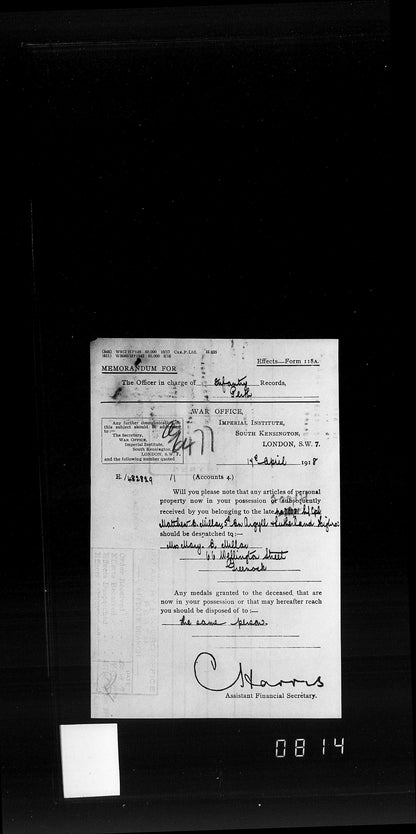 Effects—Form 118A.
MEMORANDUM FOR
The Officer in charge of Infantry Records,
Perth
WAR OFFICE,
Any further communication on
this subject should be addressed
to:—
The Secretary,
War Office,
Imperial Institute,
South Kensington,
LONDON, S.W. 7.
and the following number quoted
IMPERIAL INSTITUTE,
SOUTH KENSINGTON,
LONDON, S.W. 7.
19th April 1918
(Accounts 4.)
Will you please note that any articles of personal
property now in your possession or subsequently
received by you belonging to the late L/Cpl
Matthew B. Millar, 5th Bn Argyll
should be despatched to:—
Mrs Mary. B. Millar
66 Wellington Street
Greenock
Any medals granted to the deceased that are
now in your possession or that may hereafter reach
you should be disposed of to:—
the same person.
C Harris
Assistant Financial Secretary.
0814